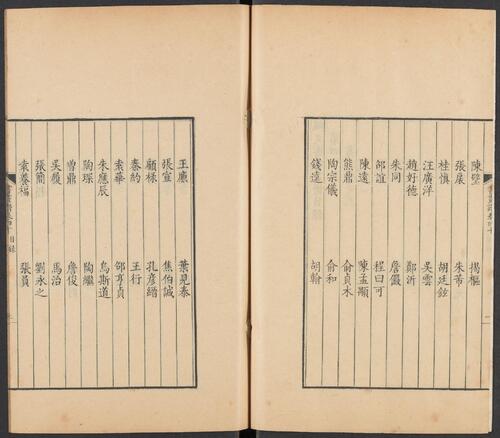 陳璧 揭樞
張㞡 朱芾
桂慎 胡廷鉉
汪廣洋 吳雲
趙好德 鄭沂
朱同 詹儼
邵誼 程曰可
陳遠 陳孟顒
熊鼎 俞貞木
陶宗儀 俞和
錢逵 胡翰
王廉 葉見泰
張宣 焦伯誠
顧祿 孔彥縉
秦約 王行
袁華 邵亨貞
朱應辰 烏斯道
陶琛 陶繼
曾鼎 詹俊
吳燹 馬治
張簡 劉永之
袁養福 張員
目錄